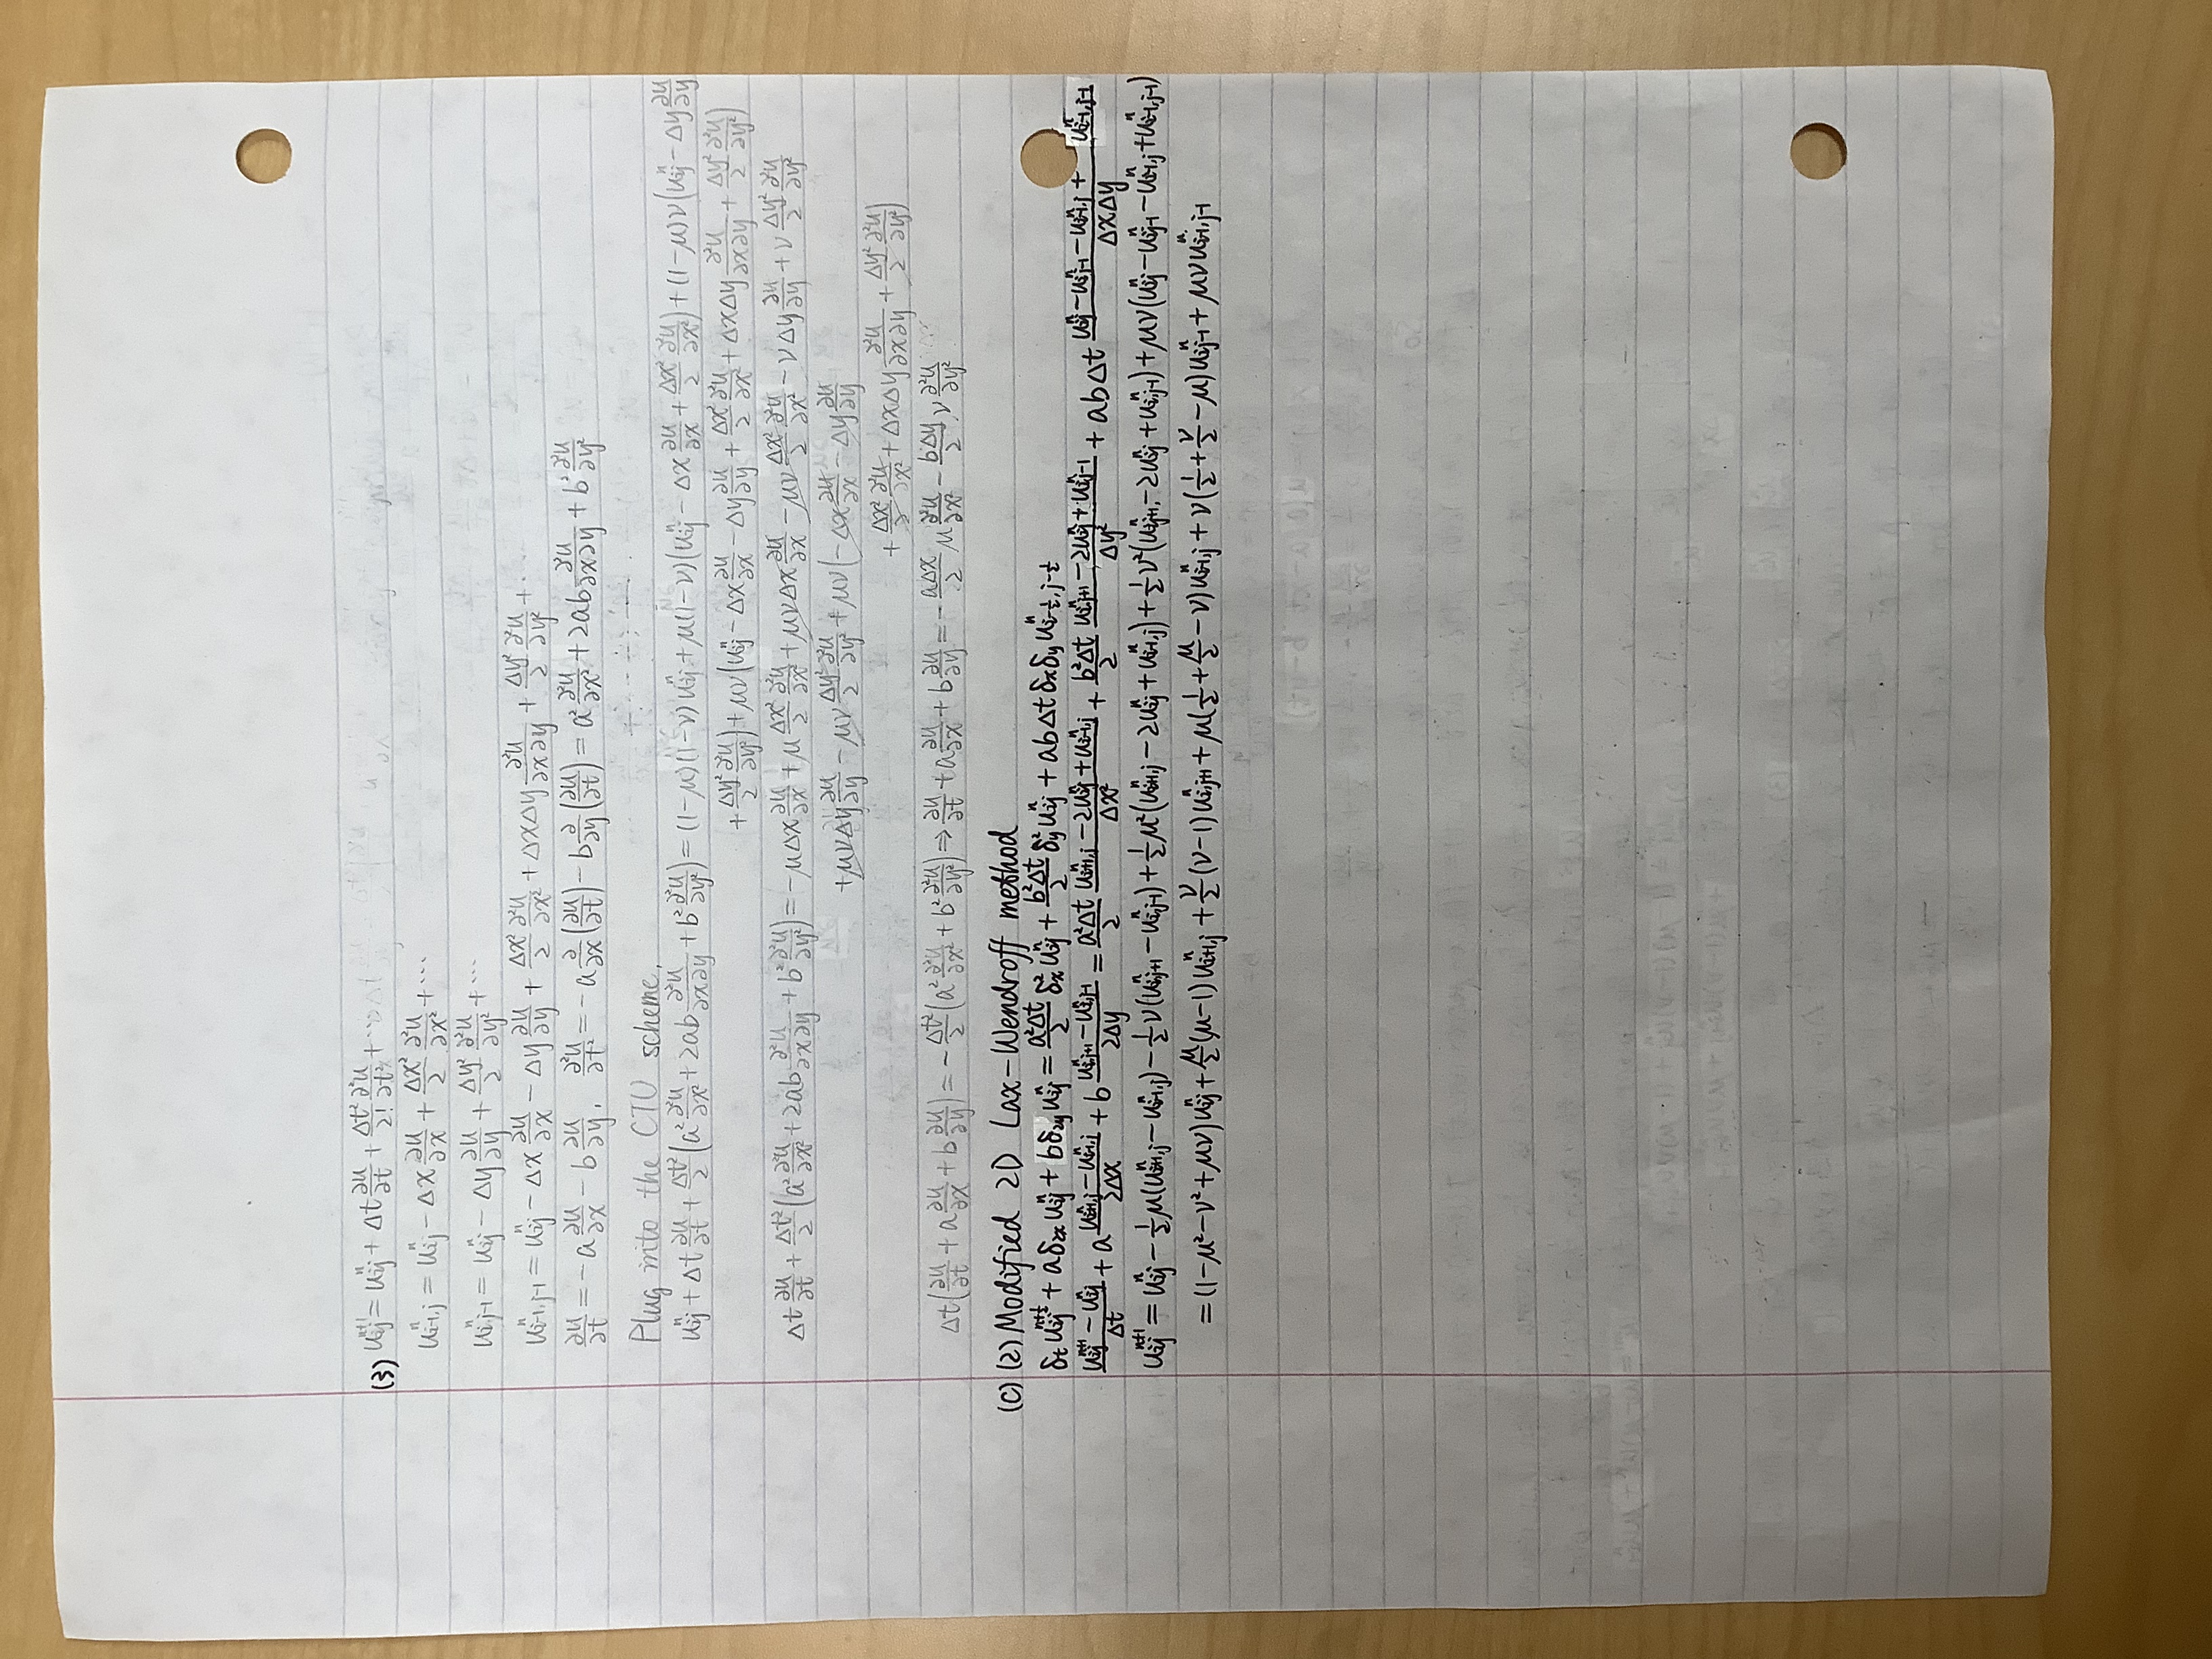 (3) u_{ij}^{n+1} = u_{ij}^n + Δt ∂u/∂t + Δt²/2! ∂²u/∂t² + ⋯
u_{i-1,j}^n = u_{ij}^n - Δx ∂u/∂x + Δx²/2 ∂²u/∂x² + ⋯
u_{i,j-1}^n = u_{ij}^n - Δy ∂u/∂y + Δy²/2 ∂²u/∂y² + ⋯
u_{i-1,j-1}^n = u_{ij}^n - Δx ∂u/∂x - Δy ∂u/∂y + Δx²/2 ∂²u/∂x² + ΔxΔy ∂²u/∂x∂y + Δy²/2 ∂²u/∂y² + ⋯
∂u/∂t = -a ∂u/∂x - b ∂u/∂y, ∂²u/∂t² = -a ∂/∂x (∂u/∂t) - b ∂/∂y (∂u/∂t) = a² ∂²u/∂x² + 2ab ∂²u/∂x∂y + b² ∂²u/∂y²
Plug into the CTU scheme,
u_{ij}^n + Δt ∂u/∂t + Δt²/2 (a² ∂²u/∂x² + 2ab ∂²u/∂x∂y + b² ∂²u/∂y²) = (1-μ)(1-ν) u_{ij}^n + μ(1-ν)(u_{ij}^n - Δx ∂u/∂x + Δx²/2 ∂²u/∂x²) + (1-μ)ν(u_{ij}^n - Δy ∂u/∂y
+ Δy²/2 ∂²u/∂y²) + μν(u_{ij}^n - Δx ∂u/∂x - Δy ∂u/∂y + Δx²/2 ∂²u/∂x² + ΔxΔy ∂²u/∂x∂y + Δy²/2 ∂²u/∂y²)
Δt ∂u/∂t + Δt²/2 (a² ∂²u/∂x² + 2ab ∂²u/∂x∂y + b² ∂²u/∂y²) = -μΔx ∂u/∂x + μ Δx²/2 ∂²u/∂x² + μνΔx ∂u/∂x - μν Δx²/2 ∂²u/∂x² - νΔy ∂u/∂y + ν Δy²/2 ∂²u/∂y²
+ μνΔy ∂u/∂y - μν Δy²/2 ∂²u/∂y² + μν(-Δx ∂u/∂x - Δy ∂u/∂y
+ Δx²/2 ∂²u/∂x² + ΔxΔy ∂²u/∂x∂y + Δy²/2 ∂²u/∂y²)
Δt(∂u/∂t + a ∂u/∂x + b ∂u/∂y) = -Δt²/2 (a² ∂²u/∂x² + b² ∂²u/∂y²) ⇒ ∂u/∂t + a ∂u/∂x + b ∂u/∂y = -aΔx/2 μ ∂²u/∂x² - bΔy/2 ν ∂²u/∂y²
(C) (2) Modified 2D Lax-Wendroff method
δ_t u_{ij}^{n+½} + aδ_{2x} u_{ij}^n + bδ_{2y} u_{ij}^n = a²Δt/2 δ_x² u_{ij}^n + b²Δt/2 δ_y² u_{ij}^n + abΔt δ_x δ_y u_{i-½,j-½}^n
(u_{ij}^{n+1} - u_{ij}^n)/Δt + a (u_{i+1,j}^n - u_{i-1,j}^n)/2Δx + b (u_{i,j+1}^n - u_{i,j-1}^n)/2Δy = a²Δt/2 (u_{i+1,j}^n - 2u_{ij}^n + u_{i-1,j}^n)/Δx² + b²Δt/2 (u_{i,j+1}^n - 2u_{ij}^n + u_{i,j-1}^n)/Δy² + abΔt (u_{ij}^n - u_{i,j-1}^n - u_{i-1,j}^n + u_{i-1,j-1}^n)/ΔxΔy
u_{ij}^{n+1} = u_{ij}^n - ½μ(u_{i+1,j}^n - u_{i-1,j}^n) - ½ν(u_{i,j+1}^n - u_{i,j-1}^n) + ½μ²(u_{i+1,j}^n - 2u_{ij}^n + u_{i-1,j}^n) + ½ν²(u_{i,j+1}^n - 2u_{ij}^n + u_{i,j-1}^n) + μν(u_{ij}^n - u_{i,j-1}^n - u_{i-1,j}^n + u_{i-1,j-1}^n)
= (1-μ²-ν²+μν)u_{ij}^n + μ/2 (μ-1) u_{i+1,j}^n + ν/2 (ν-1) u_{i,j+1}^n + μ(½ + μ/2 - ν) u_{i-1,j}^n + ν(½ + ν/2 - μ) u_{i,j-1}^n + μν u_{i-1,j-1}^n